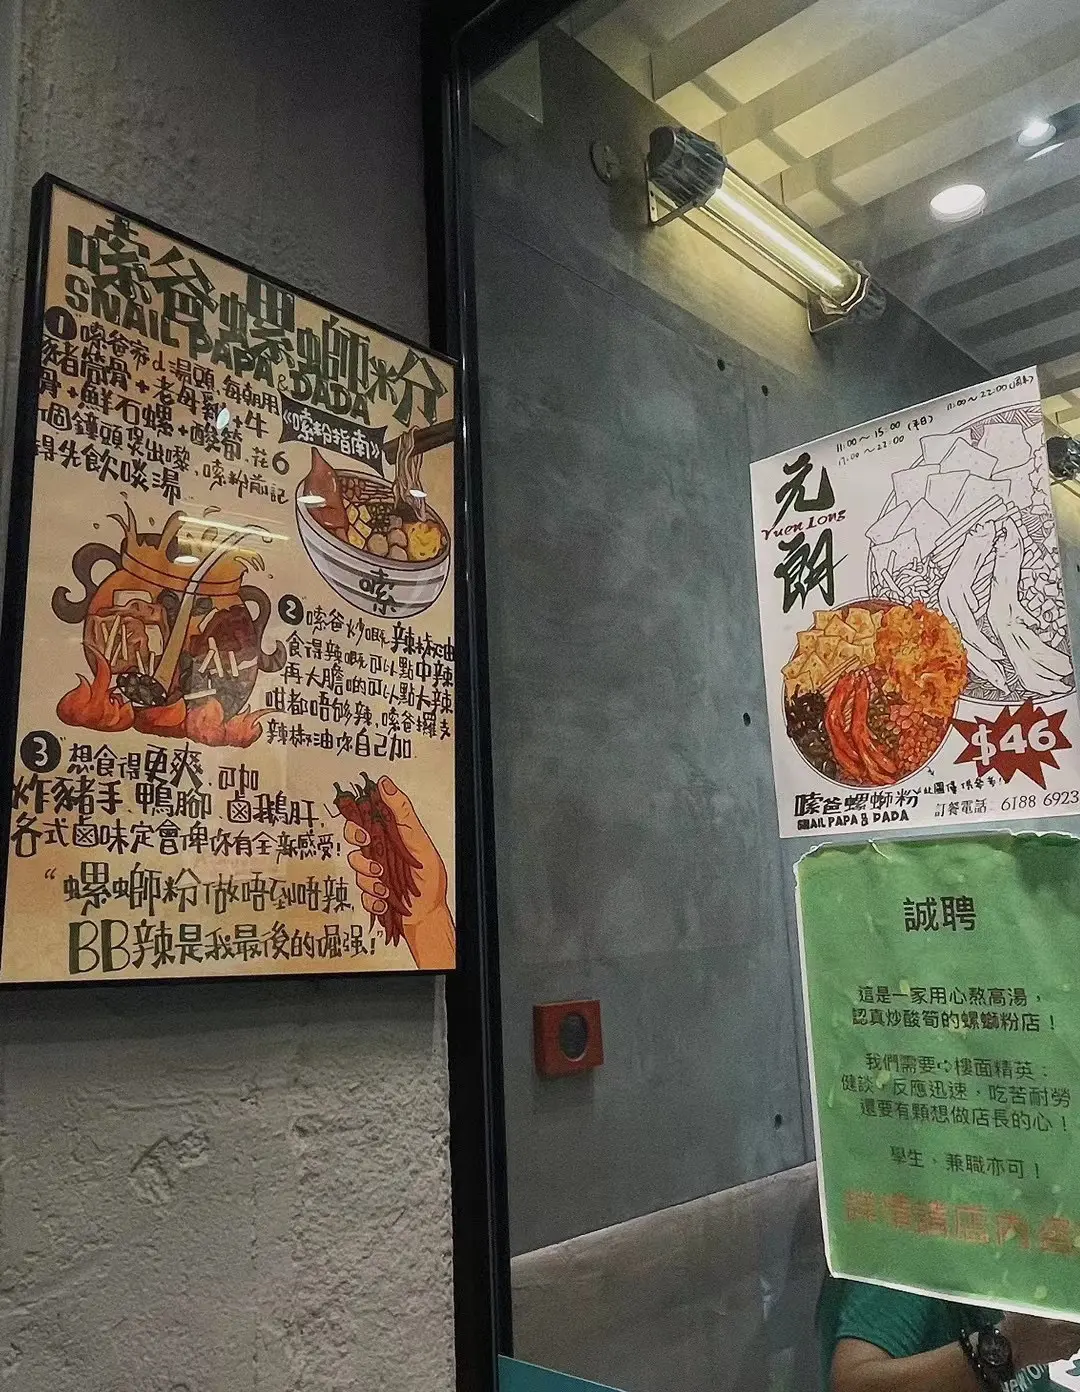 嗦爸螺螄粉
SNAIL PAPA & DADA
《嗦粉指南》
1 "嗦爸家d湯頭，每朝用
豬筒骨+老母雞+牛
骨+鮮石螺+酸筍，花6
個鐘頭煲出嚟，嗦粉前記
得先飲啖湯"
嗦
2 "嗦爸炒嘅辣椒油
食得辣嘅可以點中辣
再大膽啲可以點大辣
咁都唔夠辣，嗦爸攞支
辣椒油你自己加
3 "想食得更爽 可加
炸豬手、鴨腳、鹵鵝肝，
各式鹵味定會俾你有全新感受!
"螺螄粉做唔到唔辣，
BB辣是我最後的倔强!"
11:00～15:00 (平日)
17:00～22:00
11:00～22:00 (周末)
元朗
Yuen Long
$46
嗦爸螺螄粉
SNAIL PAPA & DADA
訂餐電話: 6188 6923
誠聘
這是一家用心熬高湯，
認真炒酸筍的螺螄粉店！
我們需要樓面精英：
健談，反應迅速，吃苦耐勞
還要有顆想做店長的心！
學生、兼職亦可！